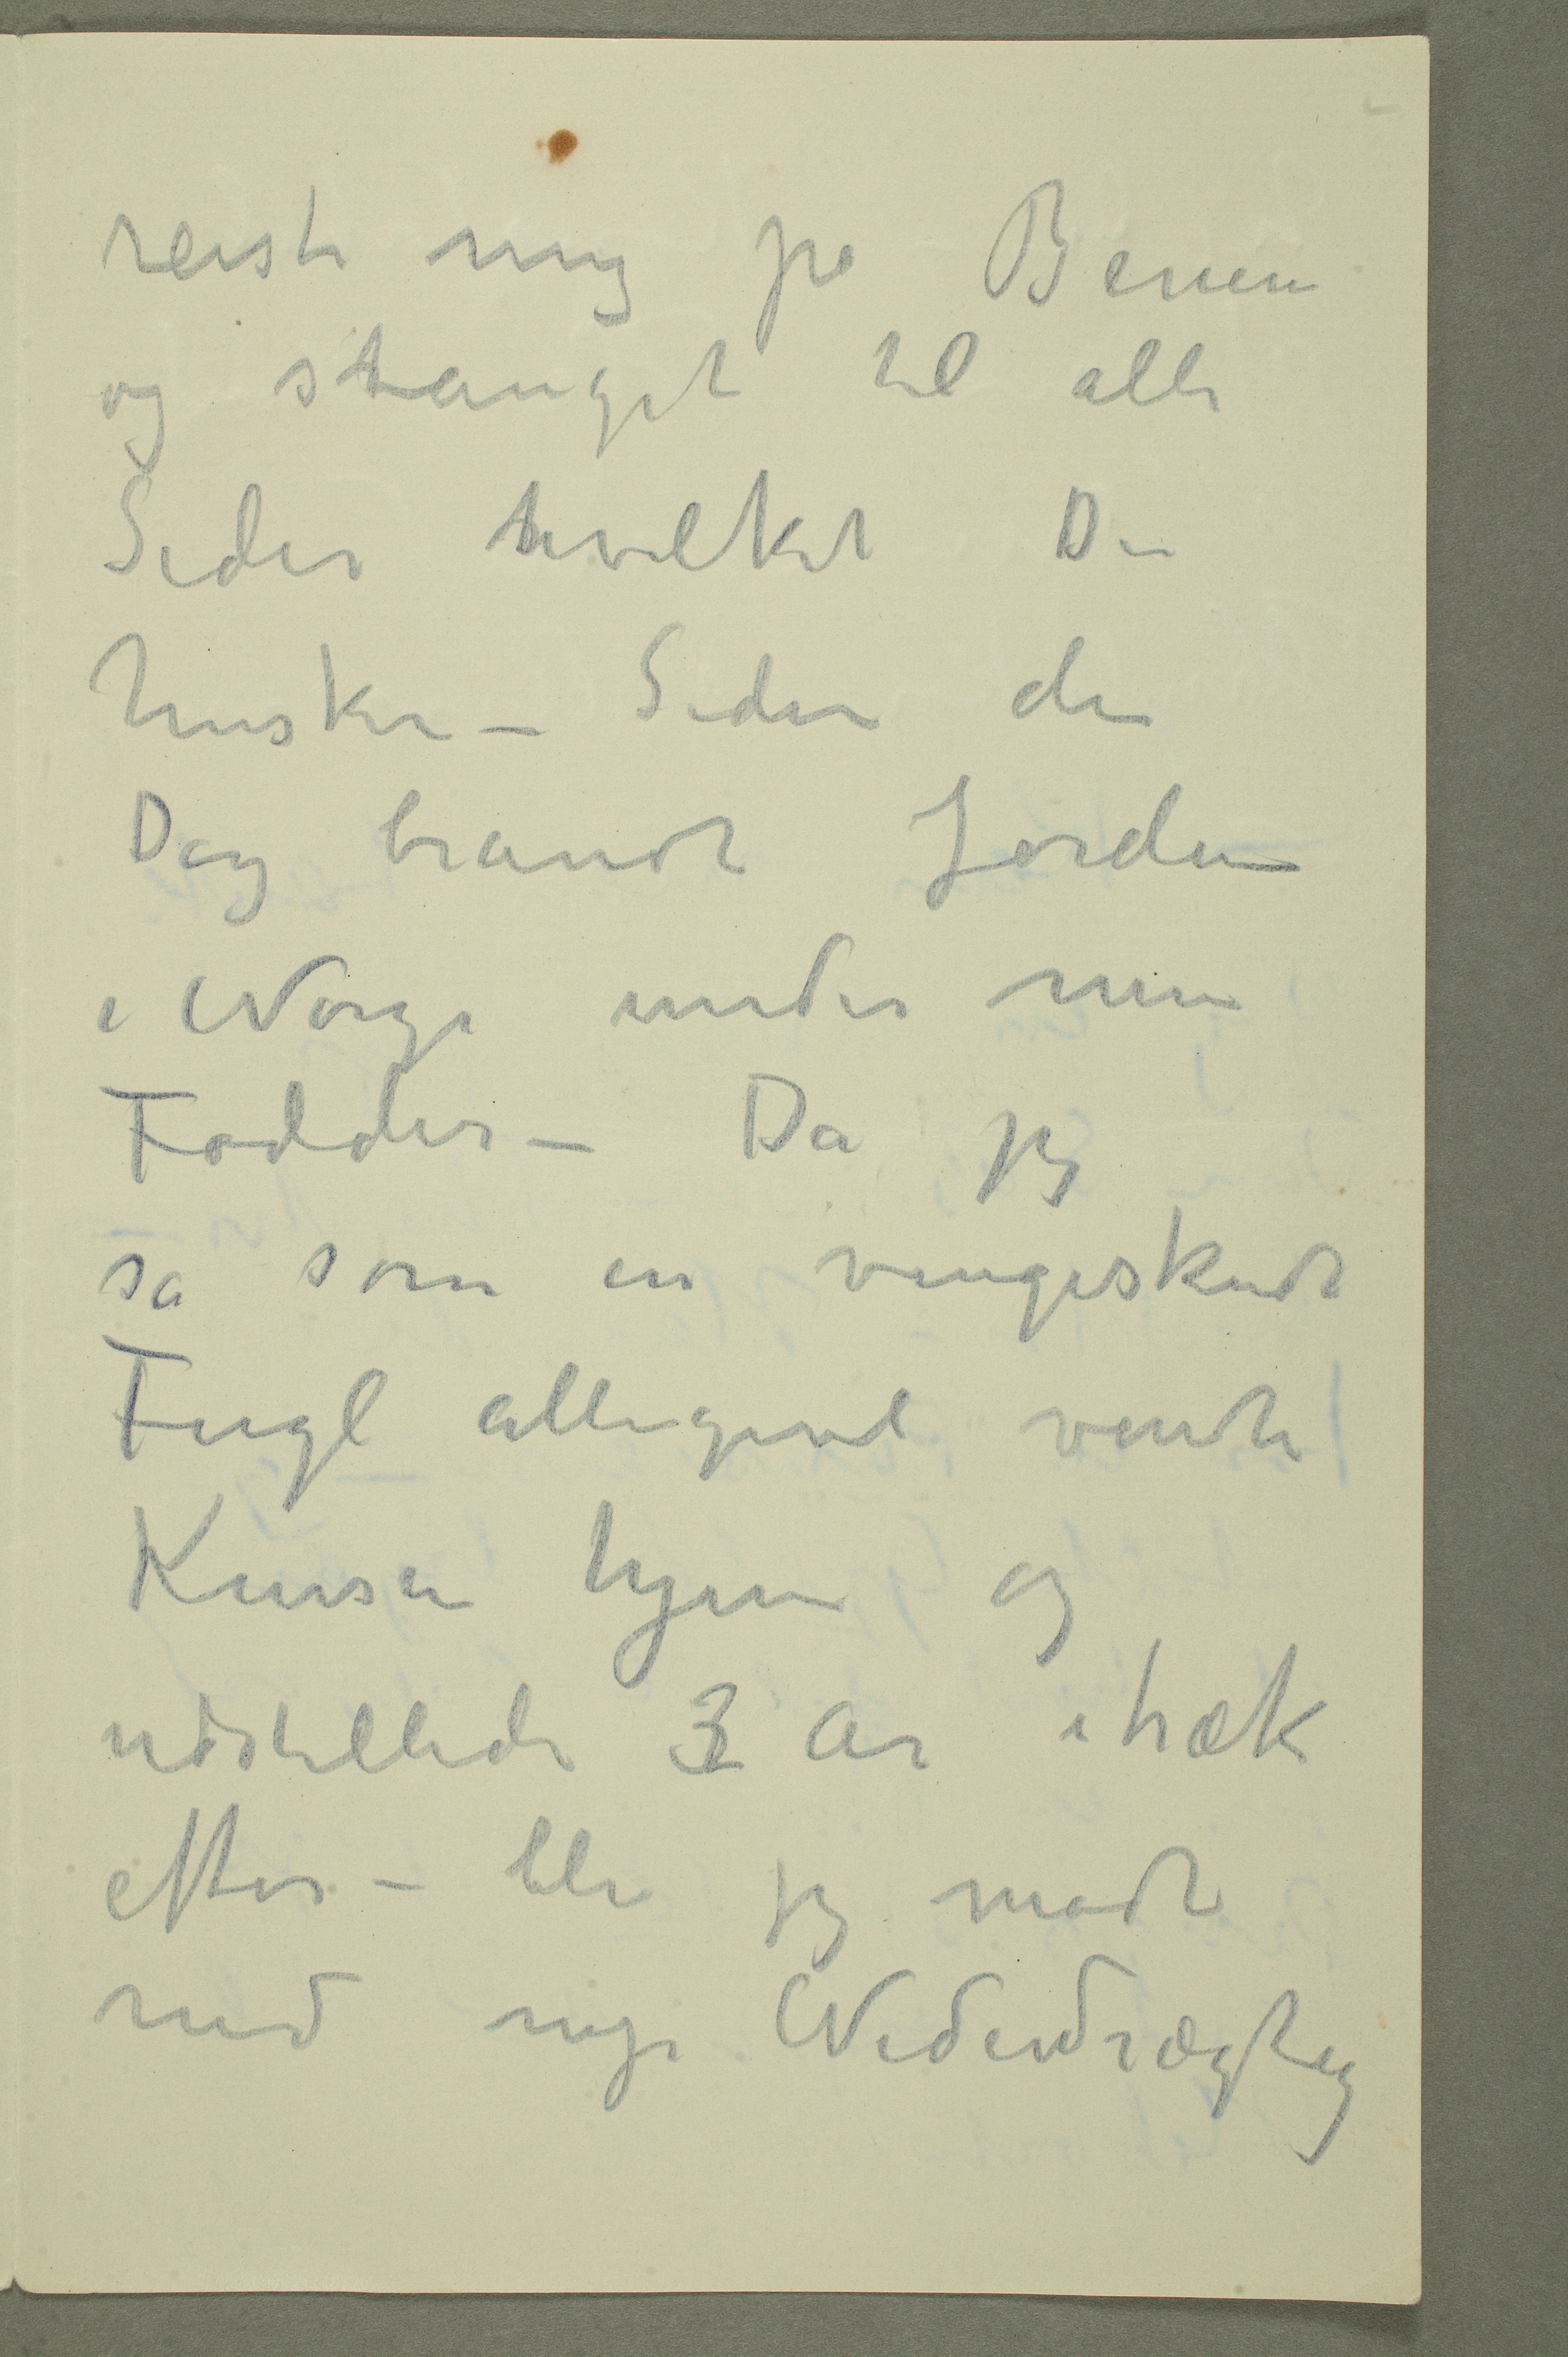 reiste mig på Benene
og stanget til alle
Sider hvilket Du
husker – Siden den
Dag brandt Jorden
i Norge under mine
Fødder – Da jeg
så som en vingeskudt
Fugl alligevel vendte
Kursen hjem og
udstillede 3 År itræk
efter – ble jeg mødt
med nye Nederdrægtig